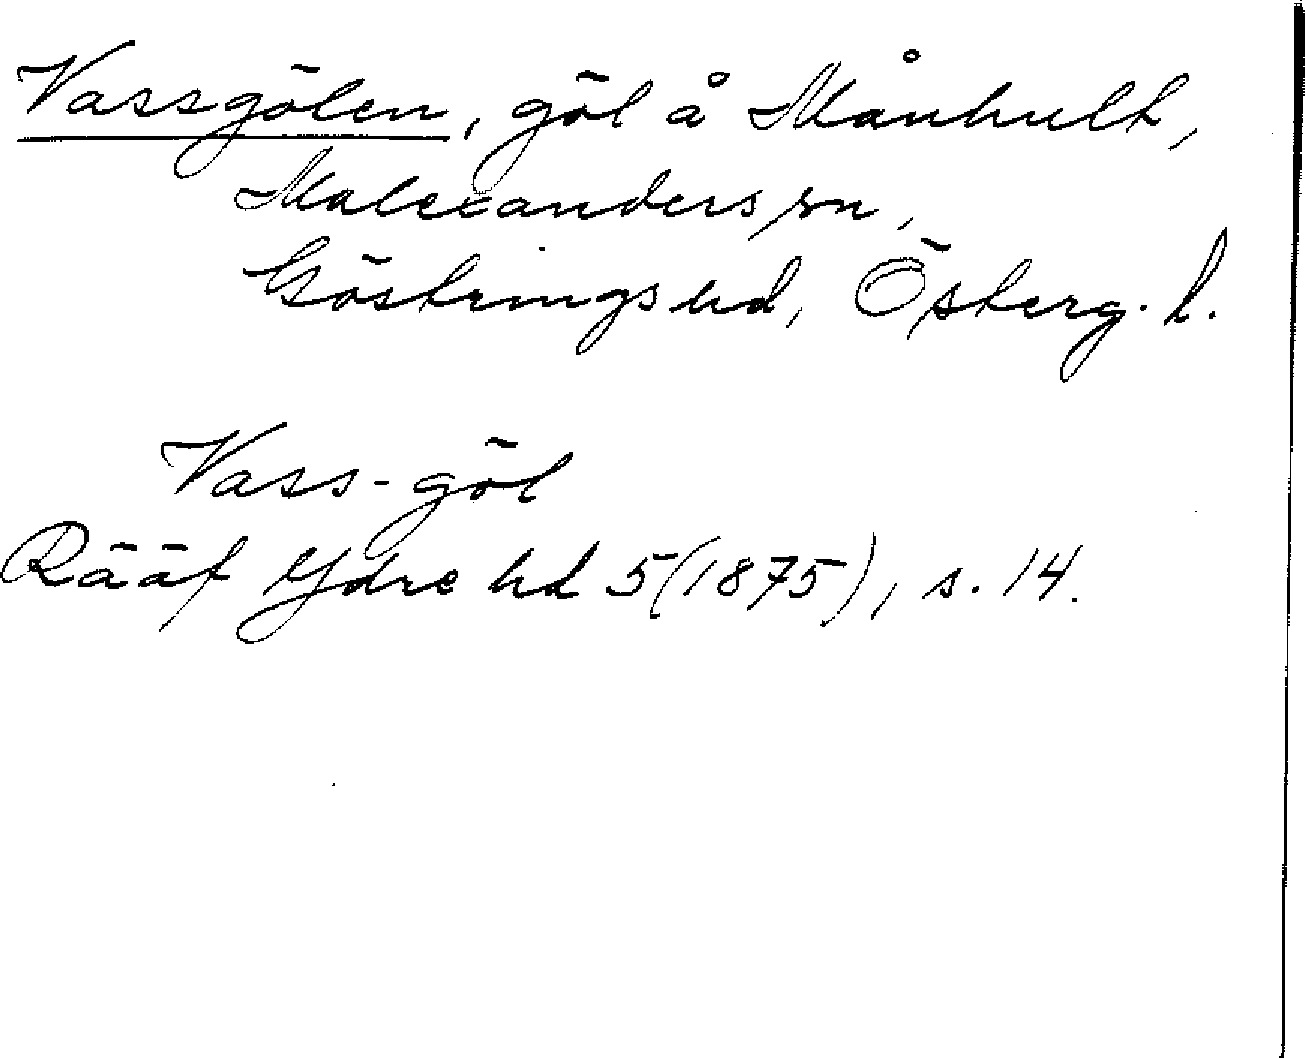 Vassgölen, göl å Månhult,
Malexanders sn,
Göstrings hd, Österg. l.
Vass-göl
Rääf Ydre hd 5 (1875), s. 14.